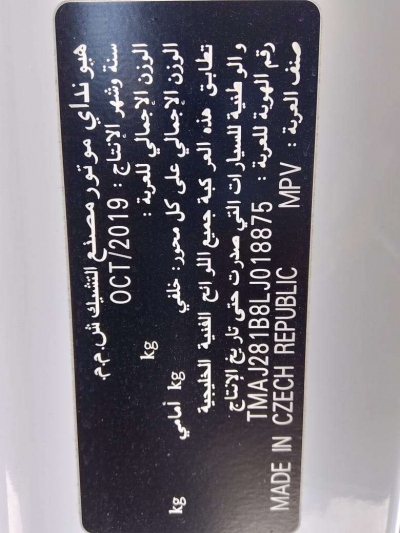 هيونداي موتور مصنع التشيك ش.م.م.
سنة وشهر الانتاج : OCT/2019
الوزن الإجمالي للعربة : kg
الوزن الإجمالي على كل محور : خلفي kg أمامي kg
تطابق هذه المركبة جميع اللوائح الفنية الخليجية
و الوطنية للسيارات التي صدرت حتى تاريخ الإنتاج
رقم الهوية للعربة : TMAJ281B8LJ018875
صنف العربة : MPV MADE IN CZECH REPUBLIC